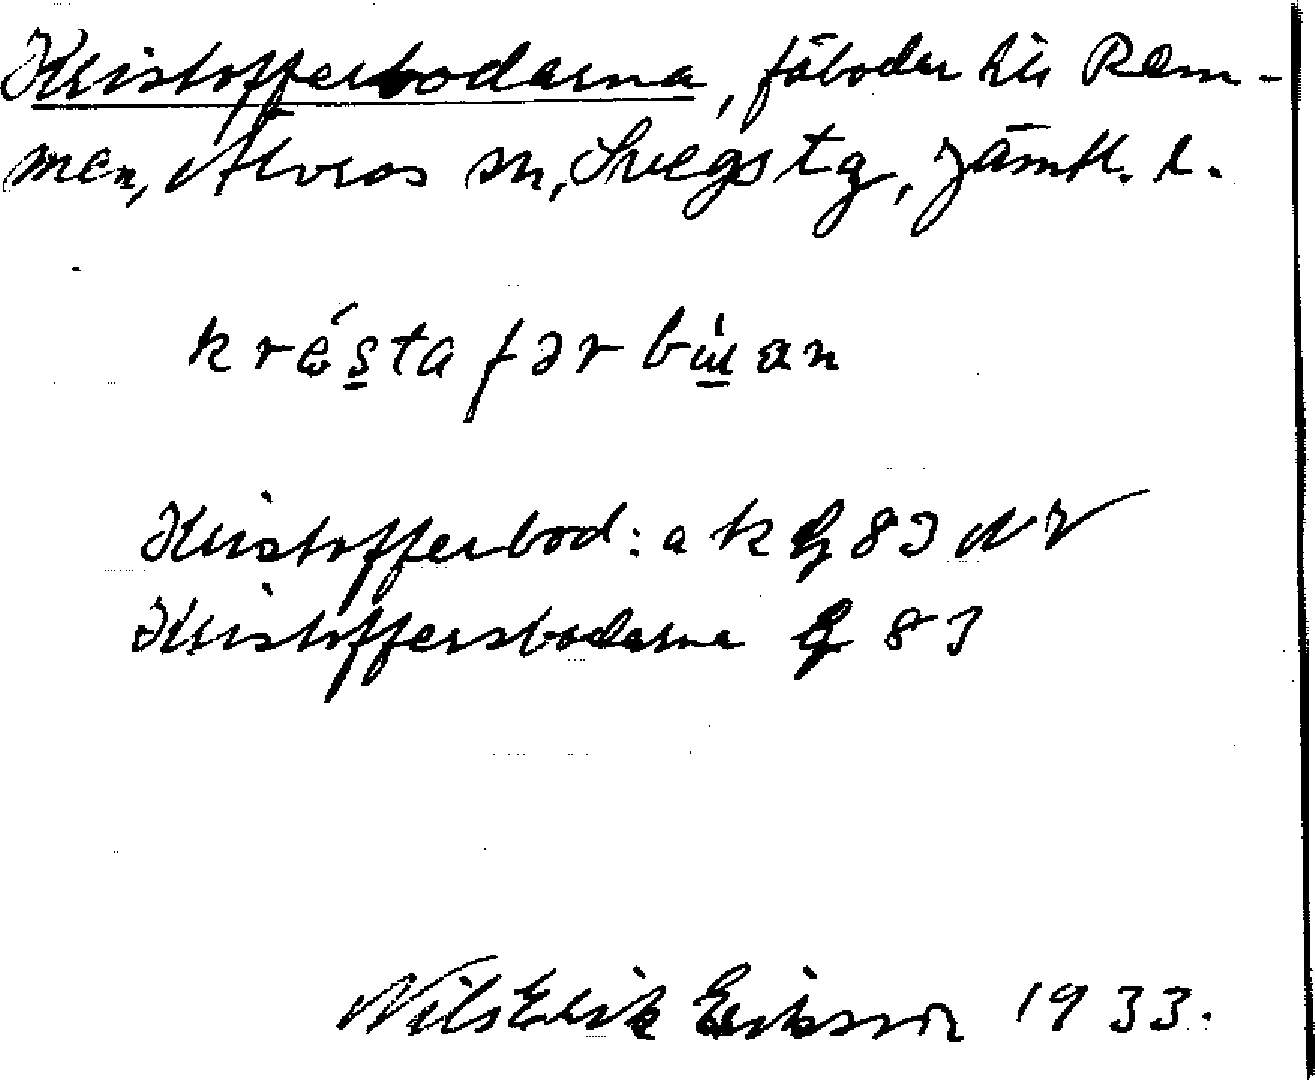 Kristofferbodarna, fäbodar till Rem-
men, Älvros sn, Svegs tg, Jämtl. l.
kréstafərbúan
Kristofferbod: a k G 83 NV
Kristoffersbodarna G 83
Nils Erik Eriksson 1933.